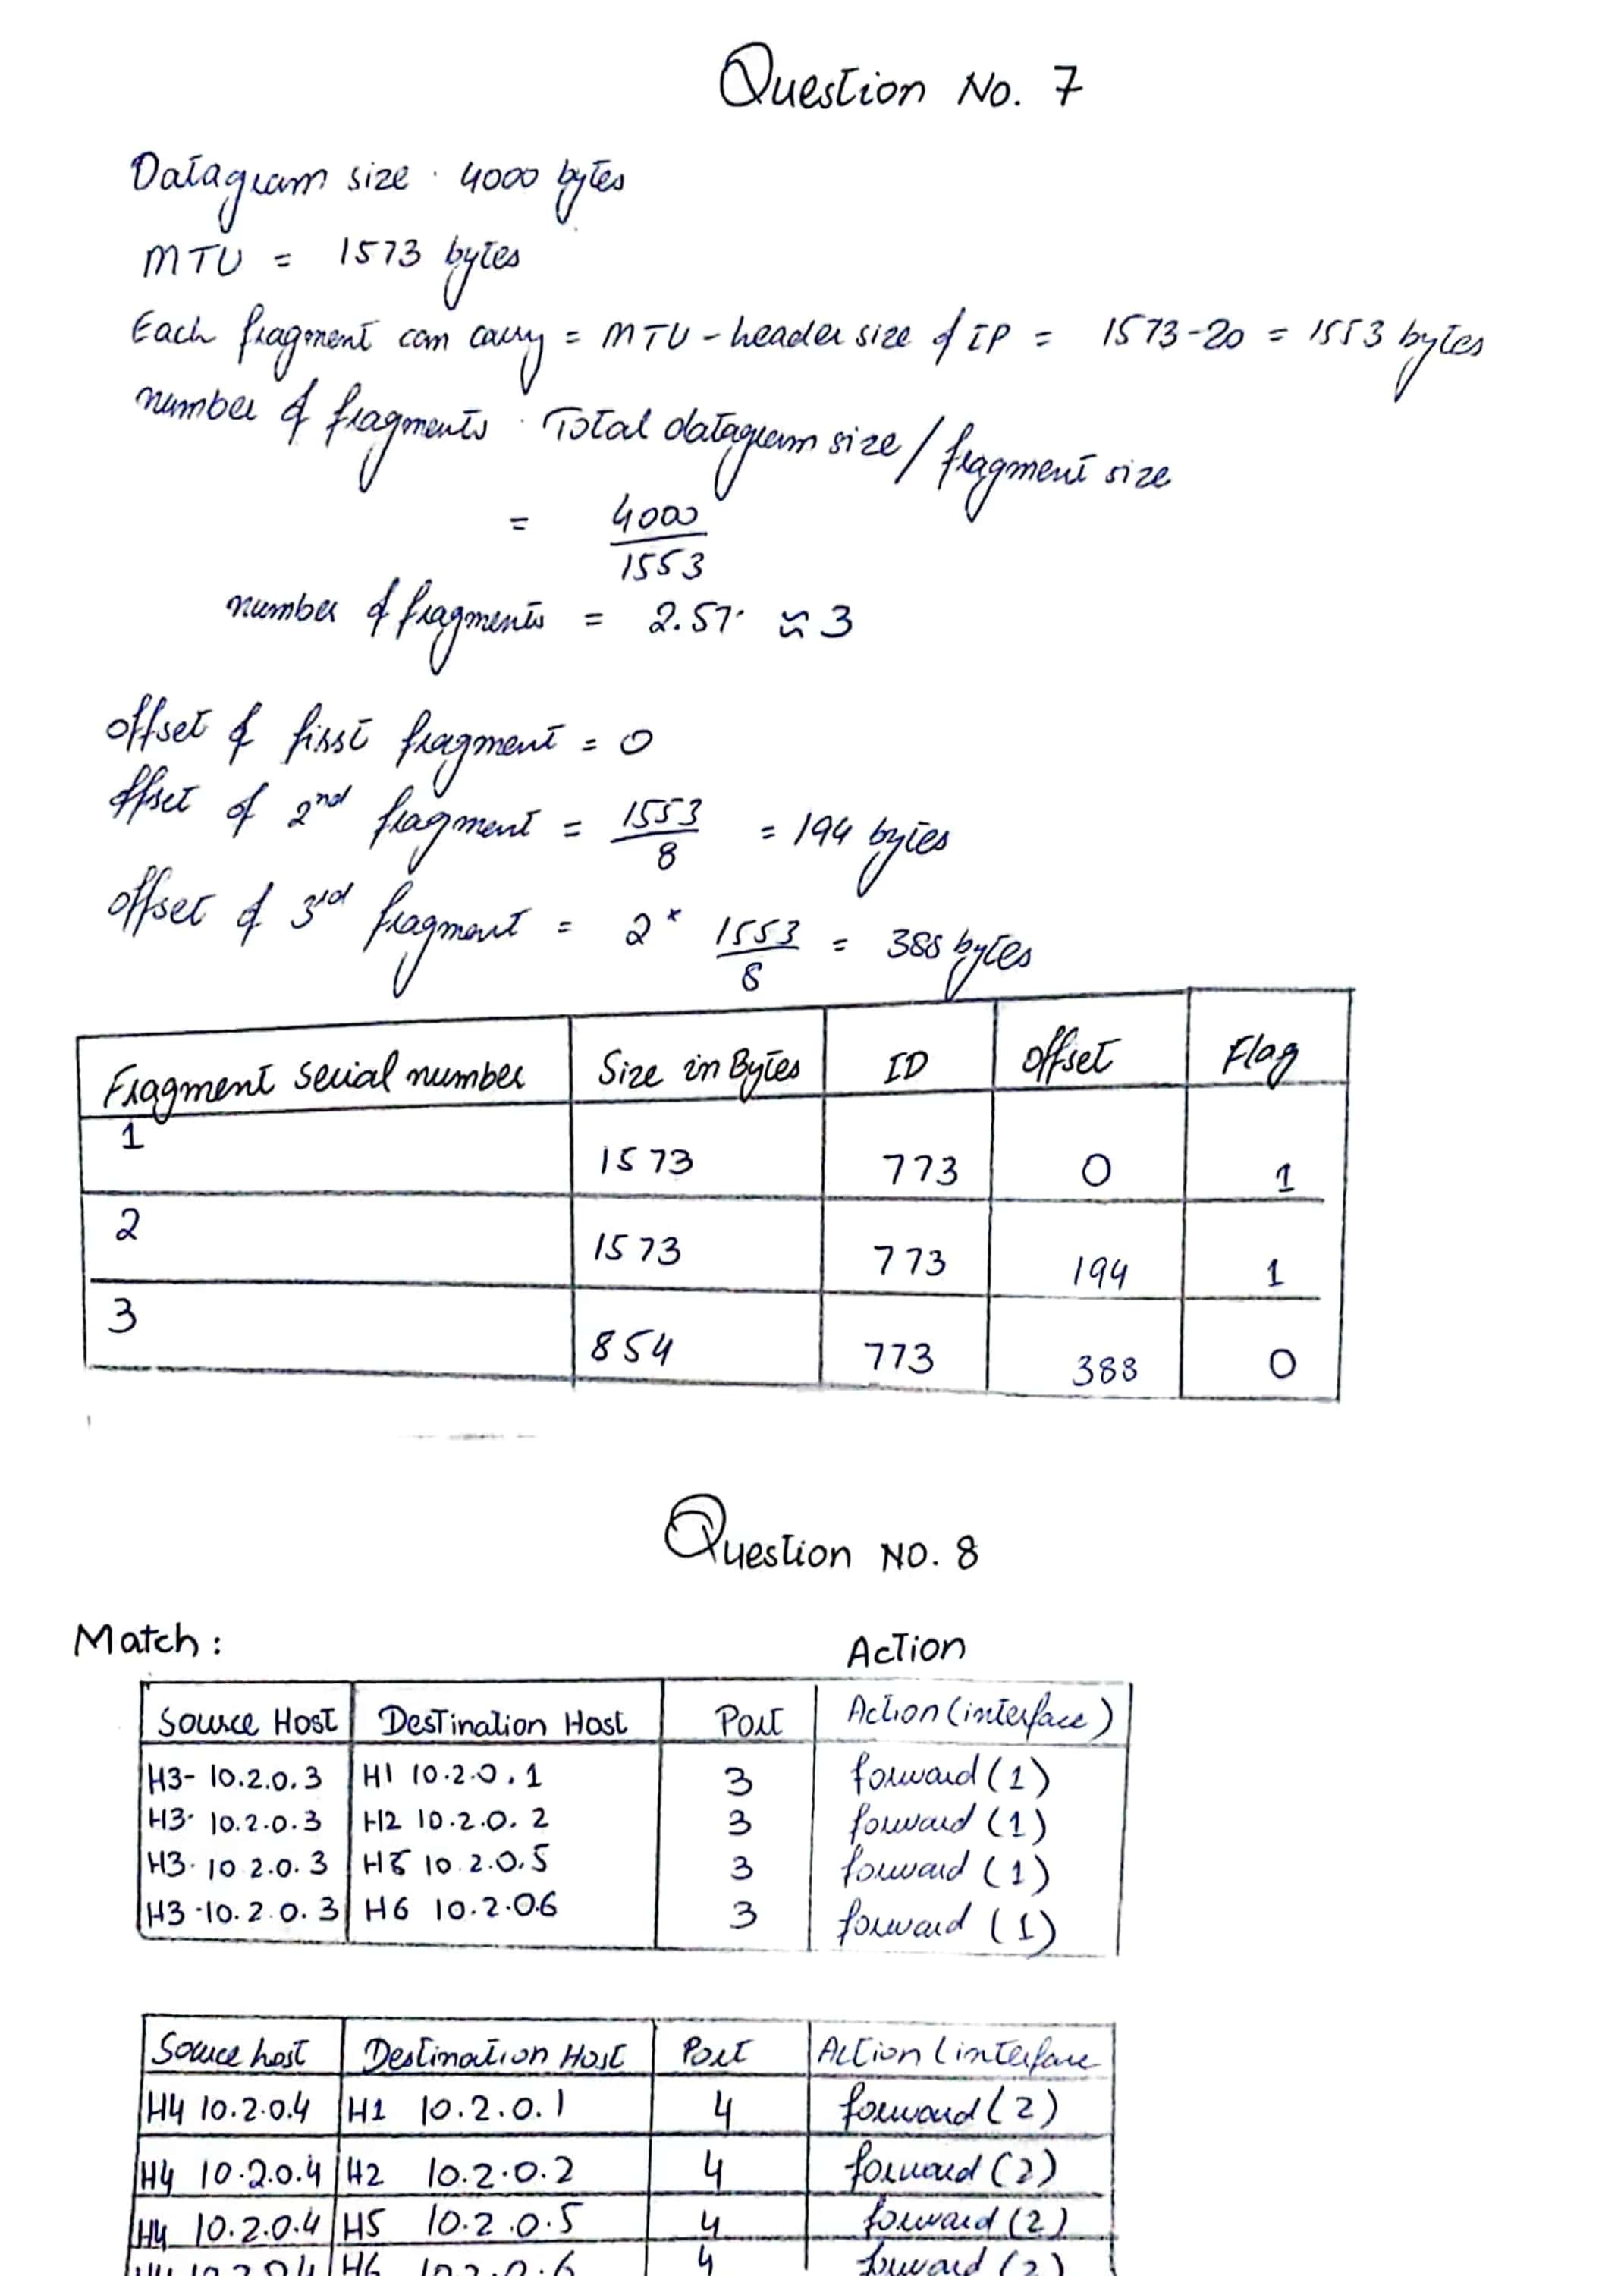 Question No. 7
Datagram size · 4000 bytes
MTU = 1573 bytes
Each fragment can carry = MTU - header size of IP = 1573-20 = 1553 bytes
number of fragments · Total datagram size / fragment size
= 4000
1553
number of fragments = 2.57 ≈ 3
offset of first fragment = 0
offset of 2nd fragment = 1553 = 194 bytes
8
offset of 3rd fragment = 2 * 1553 = 388 bytes
8
Fragment serial number Size in Bytes ID offset Flag
1 1573 773 0 1
2 1573 773 194 1
3 854 773 388 0
Question NO. 8
Match: Action
Source Host Destination Host Port Action (interface)
H3- 10.2.0.3 H1 10.2.0.1 3 forward (1)
H3- 10.2.0.3 H2 10.2.0.2 3 forward (1)
H3- 10.2.0.3 H5 10.2.0.5 3 forward (1)
H3-10.2.0.3 H6 10.2.0.6 3 forward (1)
Source host Destination Host Port Action (interface
H4 10.2.0.4 H1 10.2.0.1 4 forward (2)
H4 10.2.0.4 H2 10.2.0.2 4 forward (2)
H4 10.2.0.4 H5 10.2.0.5 4 forward (2)
H4 10.2.0.4 H6 10.2.0.6 4 forward (2)